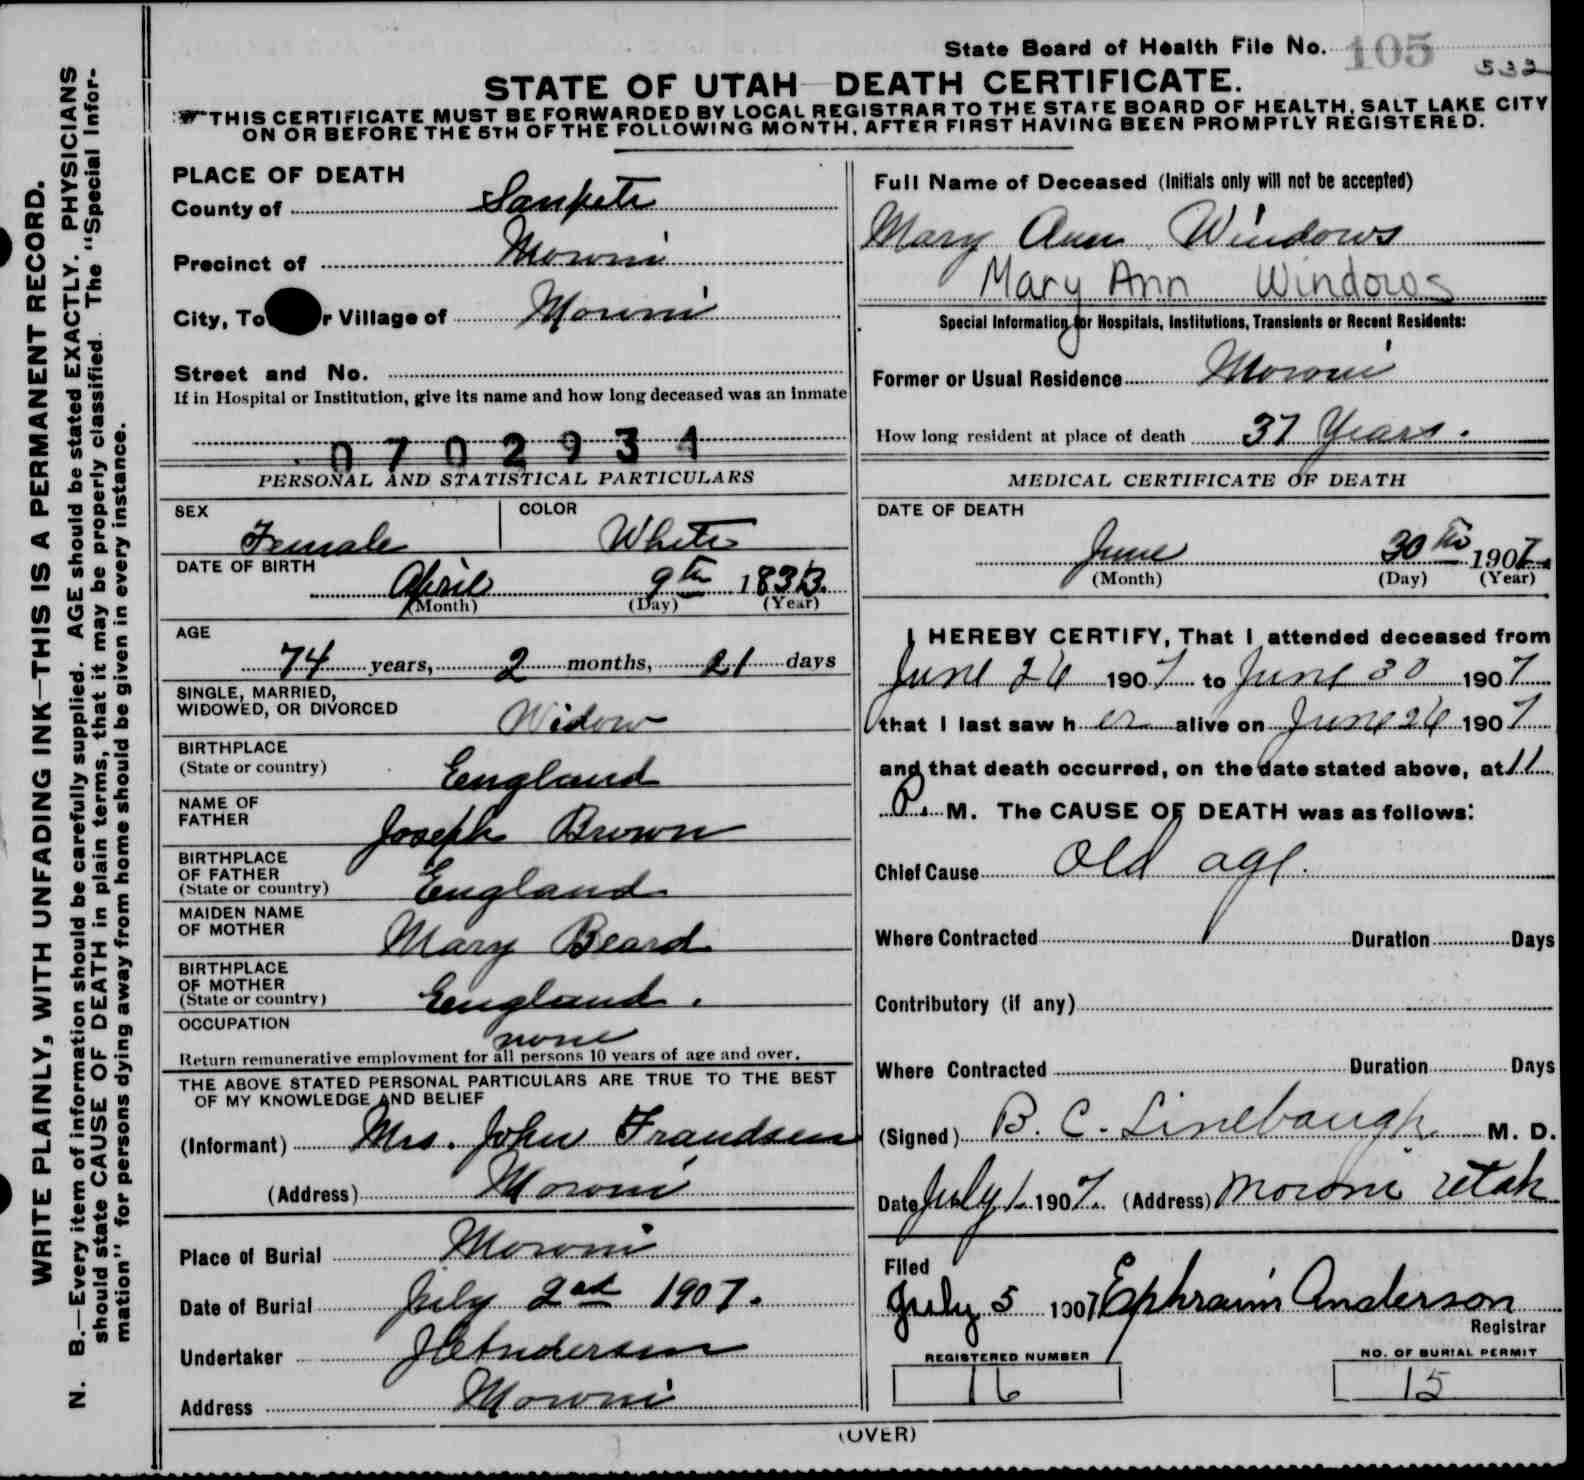 WRITE PLAINLY, WITH UNFADING INK—THIS IS A PERMANENT RECORD.
N. B.—Every item of information should be carefully supplied. AGE should be stated EXACTLY. PHYSICIANS
should state CAUSE OF DEATH in plain terms, that it may be properly classified. The "Special Infor-
mation" for persons dying away from home should be given in every instance.
State Board of Health File No. 105
532
STATE OF UTAH—DEATH CERTIFICATE.
THIS CERTIFICATE MUST BE FORWARDED BY LOCAL REGISTRAR TO THE STATE BOARD OF HEALTH, SALT LAKE CITY
ON OR BEFORE THE 5TH OF THE FOLLOWING MONTH, AFTER FIRST HAVING BEEN PROMPTLY REGISTERED.
PLACE OF DEATH
County of Sanpete
Precinct of Moroni
City, To r Village of Moroni
Street and No.
If in Hospital or Institution, give its name and how long deceased was an inmate
0702934
PERSONAL AND STATISTICAL PARTICULARS
SEX Female
COLOR White
DATE OF BIRTH
April 9th 1833.
(Month) (Day) (Year)
AGE
74 years, 2 months, 21 days
SINGLE, MARRIED,
WIDOWED, OR DIVORCED Widow
BIRTHPLACE
(State or country) England
NAME OF
FATHER Joseph Brown
BIRTHPLACE
OF FATHER
(State or country) England
MAIDEN NAME
OF MOTHER Mary Beard
BIRTHPLACE
OF MOTHER
(State or country) England.
OCCUPATION none
Return remunerative employment for all persons 10 years of age and over.
THE ABOVE STATED PERSONAL PARTICULARS ARE TRUE TO THE BEST
OF MY KNOWLEDGE AND BELIEF
(Informant) Mrs. John Frandsen
(Address) Moroni
Place of Burial Moroni
Date of Burial July 2nd 1907.
Undertaker Anderson
Address Moroni
Full Name of Deceased (Initials only will not be accepted)
Mary Ann Windows
Mary Ann Windows
Special Information for Hospitals, Institutions, Transients or Recent Residents:
Former or Usual Residence Moroni
How long resident at place of death 37 Years.
MEDICAL CERTIFICATE OF DEATH
DATE OF DEATH
June 30th 1907
(Month) (Day) (Year)
I HEREBY CERTIFY, That I attended deceased from
June 26 1907 to June 30 1907
that I last saw her alive on June 26 1907
and that death occurred, on the date stated above, at 11
P. M. The CAUSE OF DEATH was as follows:
Chief Cause Old age.
Where Contracted Duration Days
Contributory (if any)
Where Contracted Duration Days
(Signed) B. C. Linebaugh M. D.
Date July 1 1907. (Address) Moroni Utah
Filed
July 5 1907 Ephraim Anderson
Registrar
REGISTERED NUMBER
16
NO. OF BURIAL PERMIT
15
(OVER)